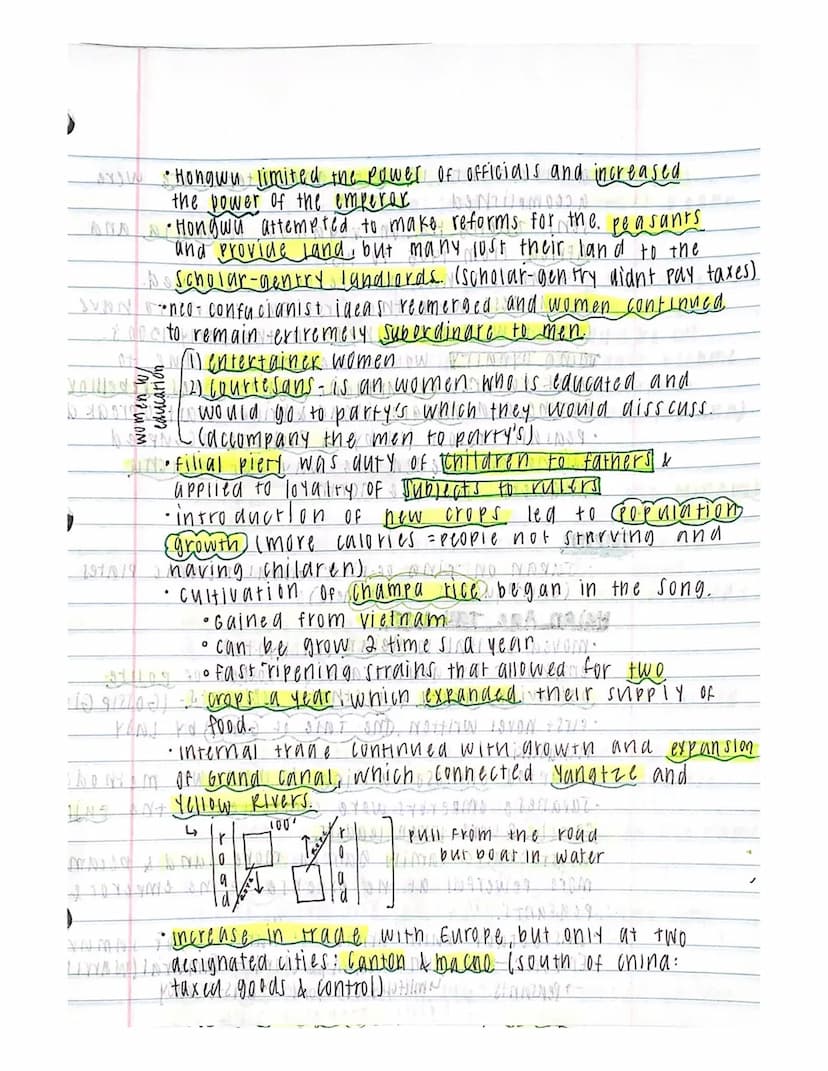 • Hongwu limited the power of officials and increased
the power of the emperor
• Hongwu attempted to make reforms for the. peasants
and provide land, but many lost their land to the
scholar-gentry landlords. (scholar-gentry didnt pay taxes)
• neo-confucianist ideas reemerged and women continued
to remain extremely subordinate to men.
women w/
education
1) entertainer women
2) courtesans - is an women who is educated and
would go to party's which they would disscuss.
(accompany the men to party's)
• filial piety was duty of children to fathers &
applied to loyalty of subjects to rulers
• introduction of new crops led to population
growth (more calories = people not starving and
having children)
• cultivation of champa rice began in the song.
• Gained from vietnam
• can be grow 2 time s a year
• fast ripening strains that allowed for two
crops a year which expanded their supply of
food.
• internal trade continued with growth and expansion
of Grand canal, which connected Yangtze and
Yellow Rivers.
↳ road 100' road
pull from the road
but boat in water
• increase in trade with Europe, but only at two
designated cities: canton & macao (south of china:
taxed goods & control)